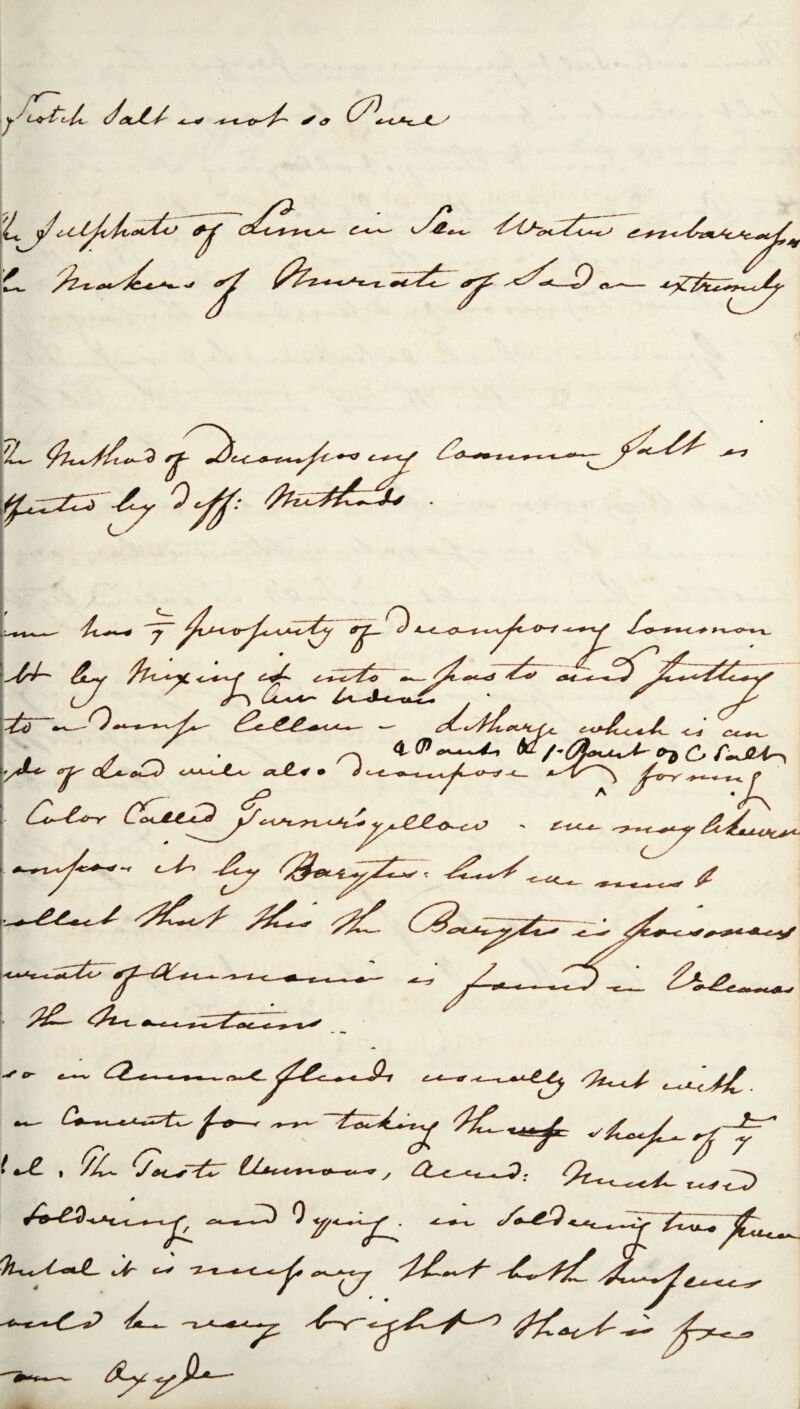 Scotch Salt is not so Pure
Sulphate of Lime in Sea Water embarrasses
Makers of Muriate of Soda extremely
The Method of Decomposing Common Salt is
by Diff: Methods .
has ye property of Decomposing Common
by Mixing it into a paste and putting
to a Damp Cellar - Litharge which is an
of Lead will also Decompose it forming
4 Parts to 1 Part of C Salt
Color Called Turner's yellow - we may likewise
it by Barytes. but we must
that this the Barytes is poisonous
of Ammonia is found in Volcanos
the Mountains
in Animal fluids usually Met with.
in Concrete form taking the shape of ye
. The Taste Urinous, Acrid: Much used
Soldering, and Dying. in Soldering two pieces
Metal it is necessary that both surfaces
be very bright that is free
Oxyde